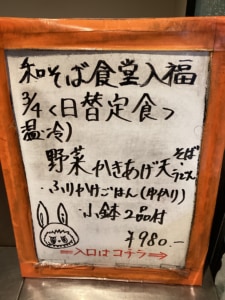 和そば食堂入福
3/4<日替定食>
温・冷)
野菜かきあげ天そば・うどん
・ふりかけごはん(牛かり)
・小鉢2品付
¥980.-
⇐入口はコチラ⇒